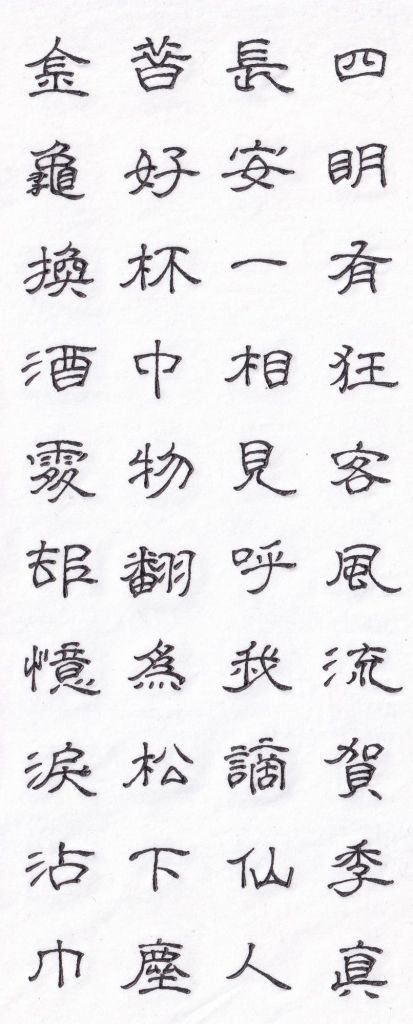 四明有狂客風流賀季真
長安一相見呼我謫仙人
昔好杯中物翻爲松下塵
金龜換酒處却憶淚沾巾